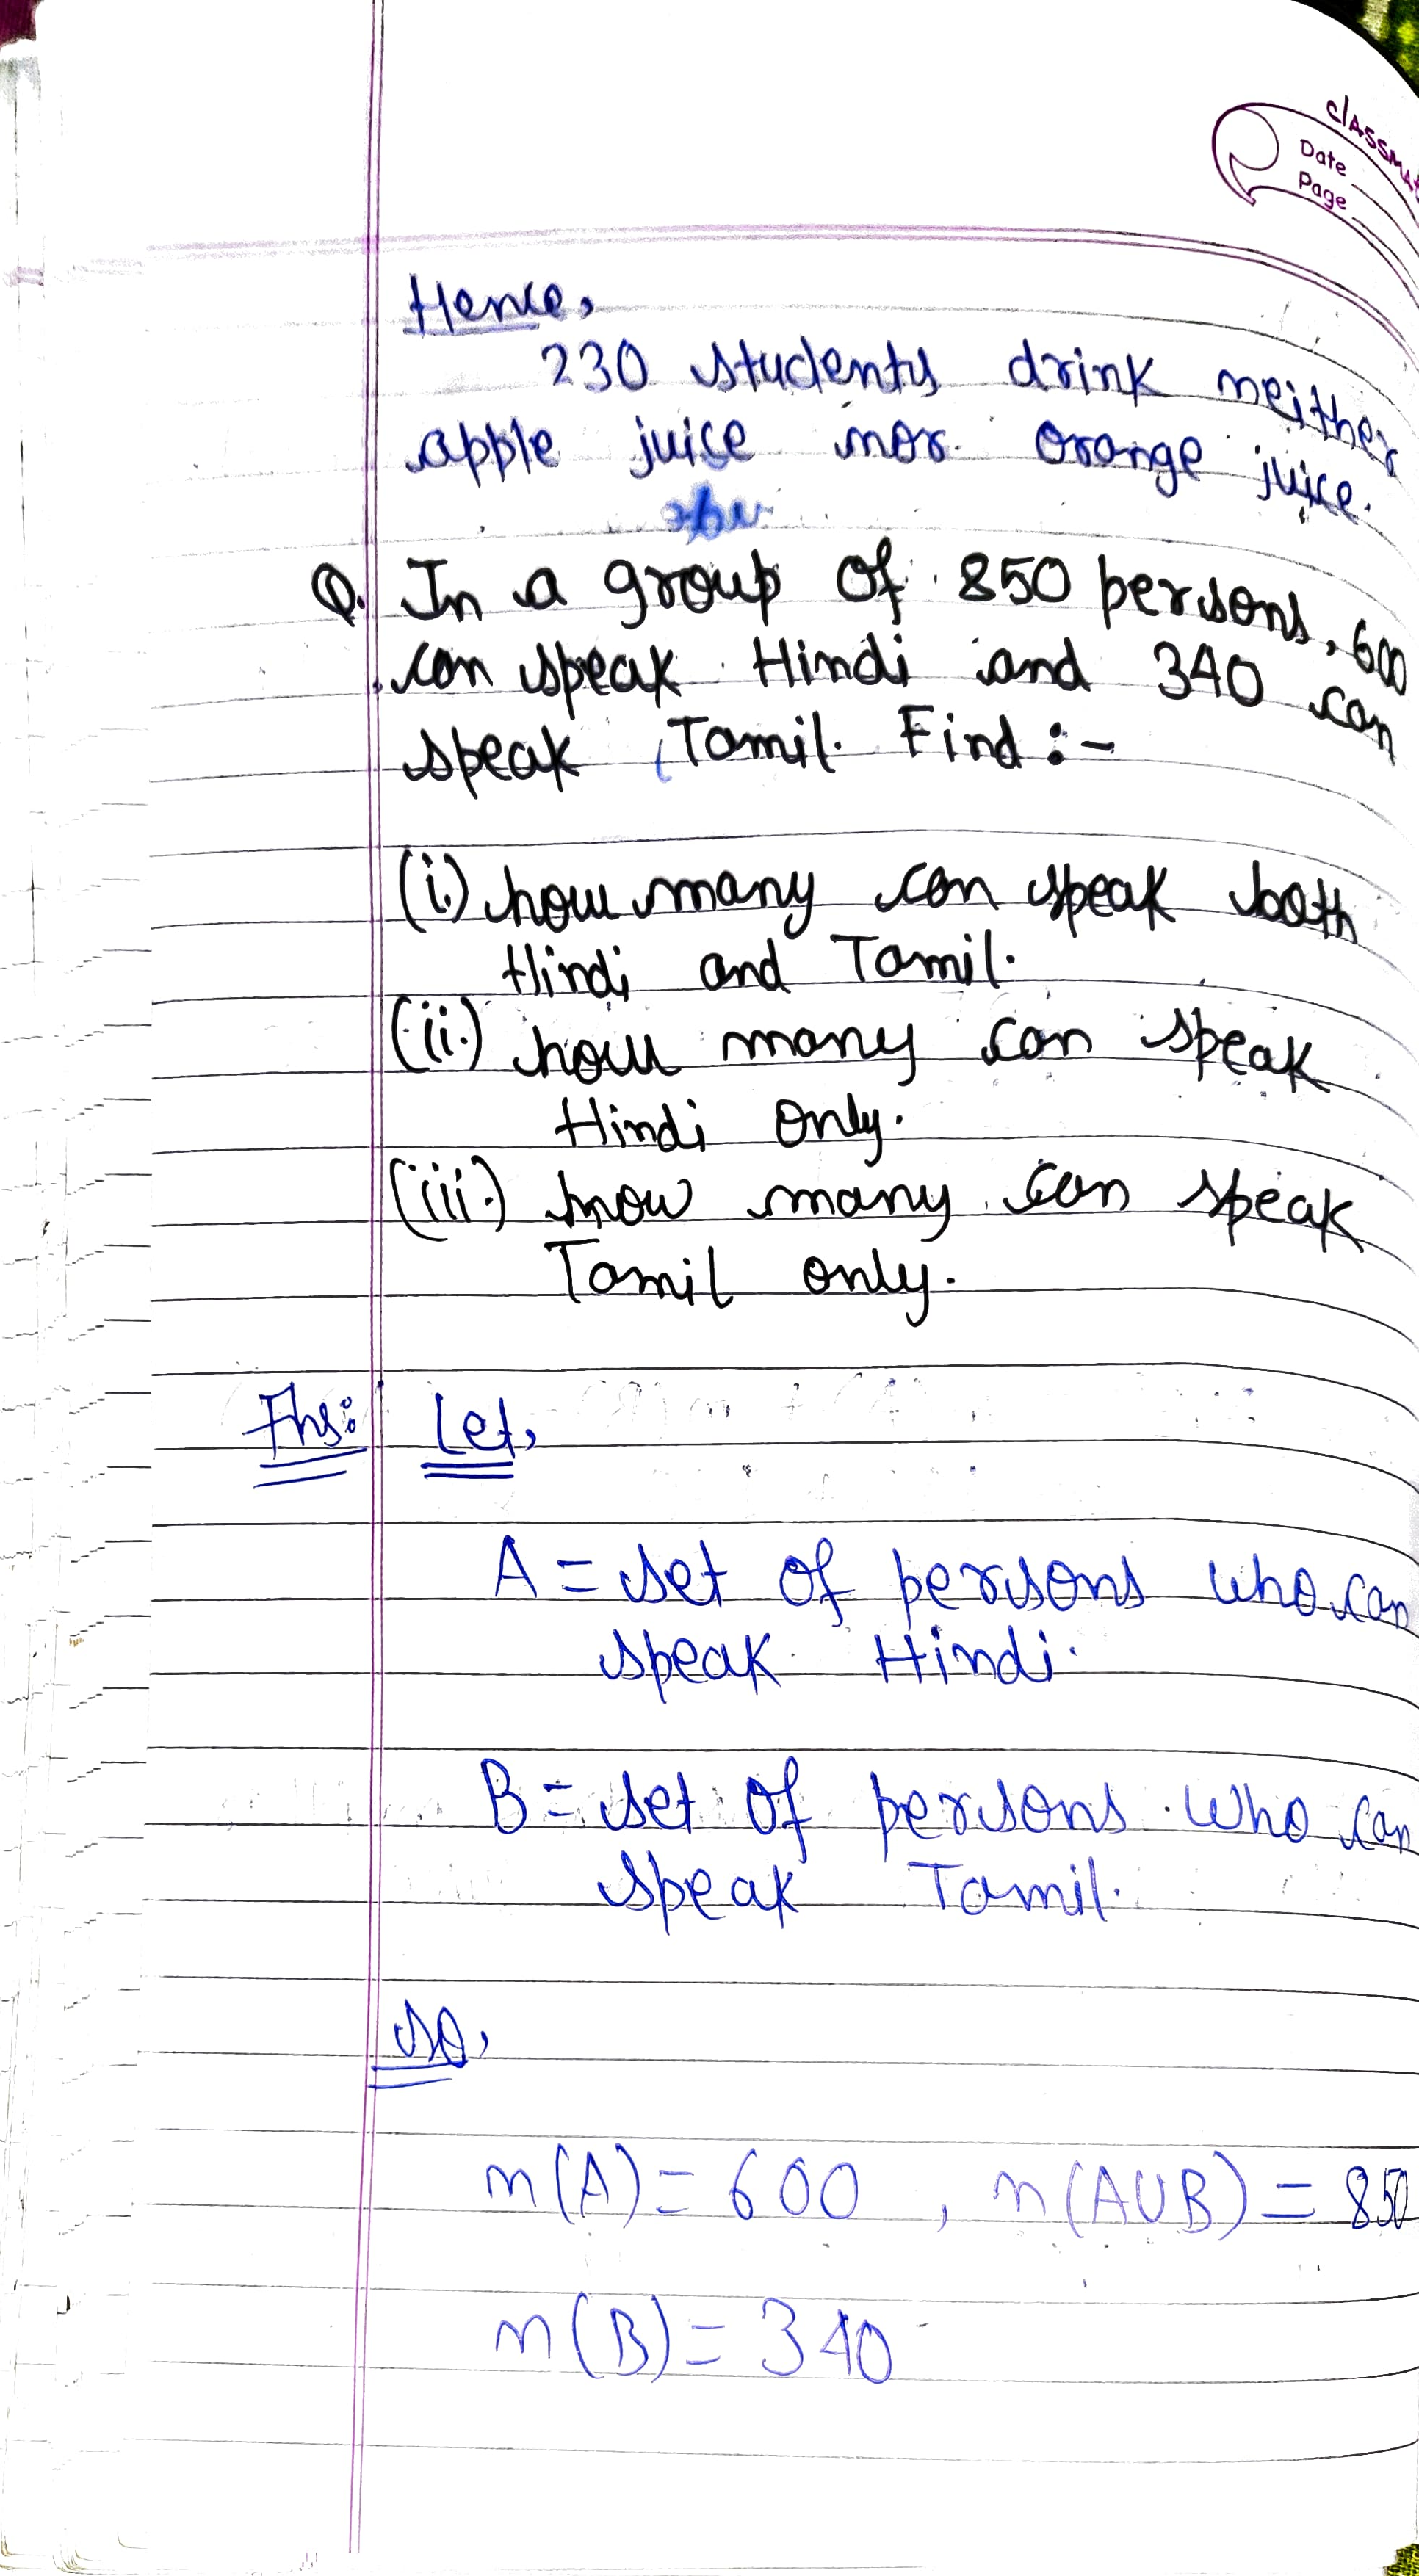 classmate
Date
Page
Hence,
230 students drink neither
apple juice nor orange juice.
Q. In a group of 850 persons, 600
can speak Hindi and 340 can
speak Tamil. Find :-
(i) how many can speak both
Hindi and Tamil.
(ii.) how many can speak
Hindi only.
(iii.) how many can speak
Tamil only.
Ans: Let,
A = set of persons who can
speak Hindi.
B = set of persons who can
speak Tamil.
So,
n(A) = 600 , n(AUB) = 850
n(B) = 340